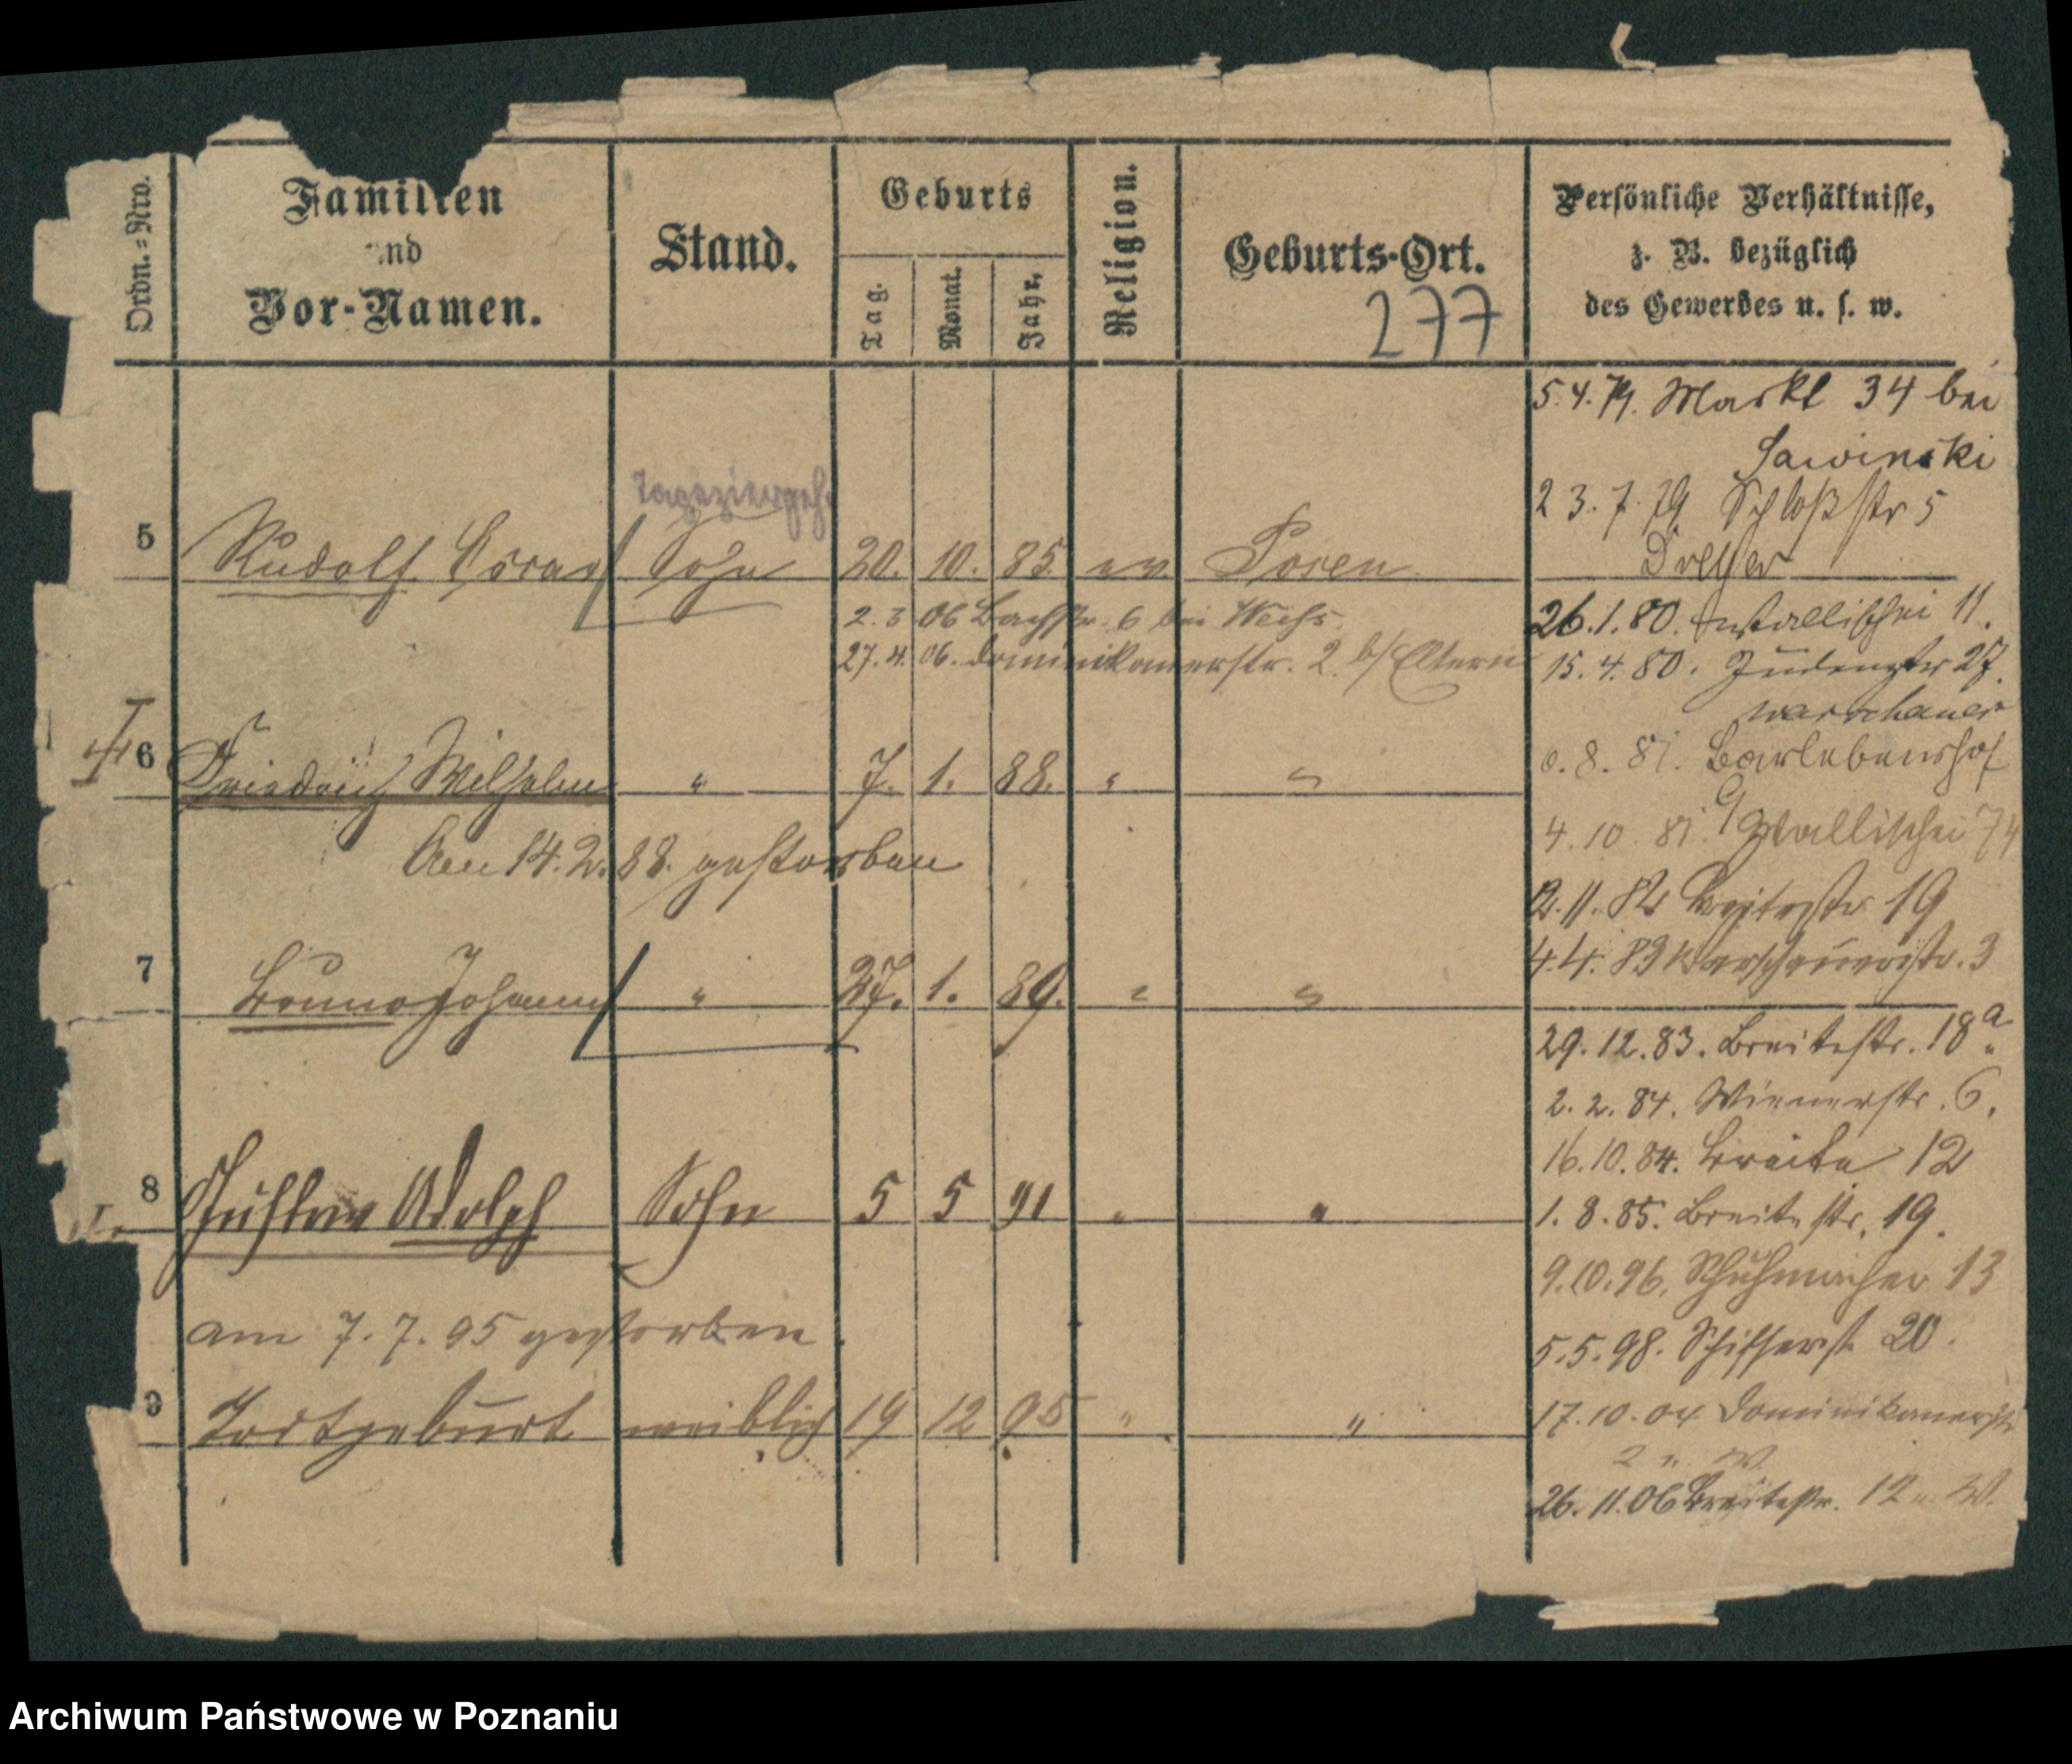 Ordn.=Nro.
Familien
und
Vor-Namen.
Stand.
Geburts
Tag.
Monat.
Jahr.
Religion.
Geburts-Ort.
277
Persönliche Verhältnisse,
z. B. bezüglich
des Gewerbes u. s. w.
5.4.79. Markt 34 bei
Sawinski
23.7.79 Schloßstr 5
Tapeziergeh.
5 Rudolf Oscar Sohn 20. 10. 85. ev. Posen
2. 3 06 Bachstr. 6 bei Weihs.
27. 4. 06. Dominikanerstr. 2. b/ Eltern
26.1.80. Wallischei 11.
15. 4. 80. Judenstr 27.
Warschauer
6 Friedrich Wilhelm " 7. 1. 88. " "
Am 14. 2. 88. gestorben
8. 81. Barlebenshof
4. 10. 81. Wallischei 74
2. 11. 82 Breitestr 19
4.4. 83 Warschauerstr. 3
7 Bruno Johannes " 27. 1. 89. " "
29. 12. 83. Breitestr. 18a.
2. 2. 84. Wienerstr. 6.
16. 10. 84. Breite 12
8 Gustav Adolph Sohn 5 5 91 " "
1. 8. 85. Breitestr. 19.
9. 10. 96. Schuhmacher 13
am 7. 7. 95 gestorben.
5. 5. 98. Schifferst. 20.
9 Todtgeburt weiblich 19 12 95 " "
17. 10. 04. Dominikanerstr
2 n. W.
26. 11. 06 Breitestr. 12 n. W.
Archiwum Państwowe w Poznaniu